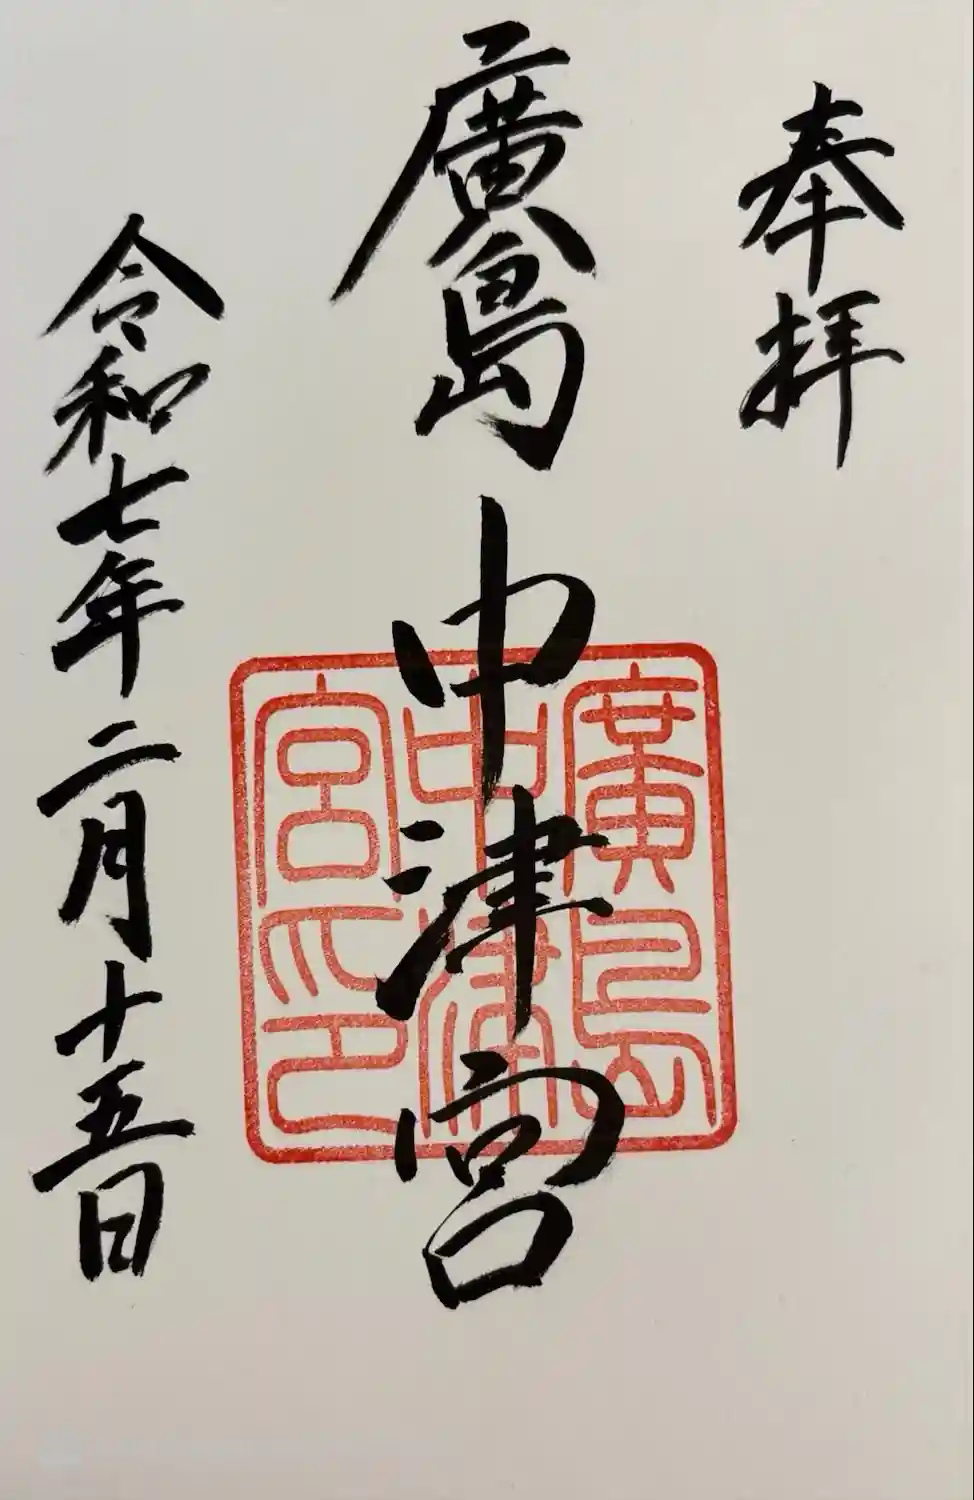 奉拝
廣島中津宮
令和七年二月十五日
廣島
中津
宮印